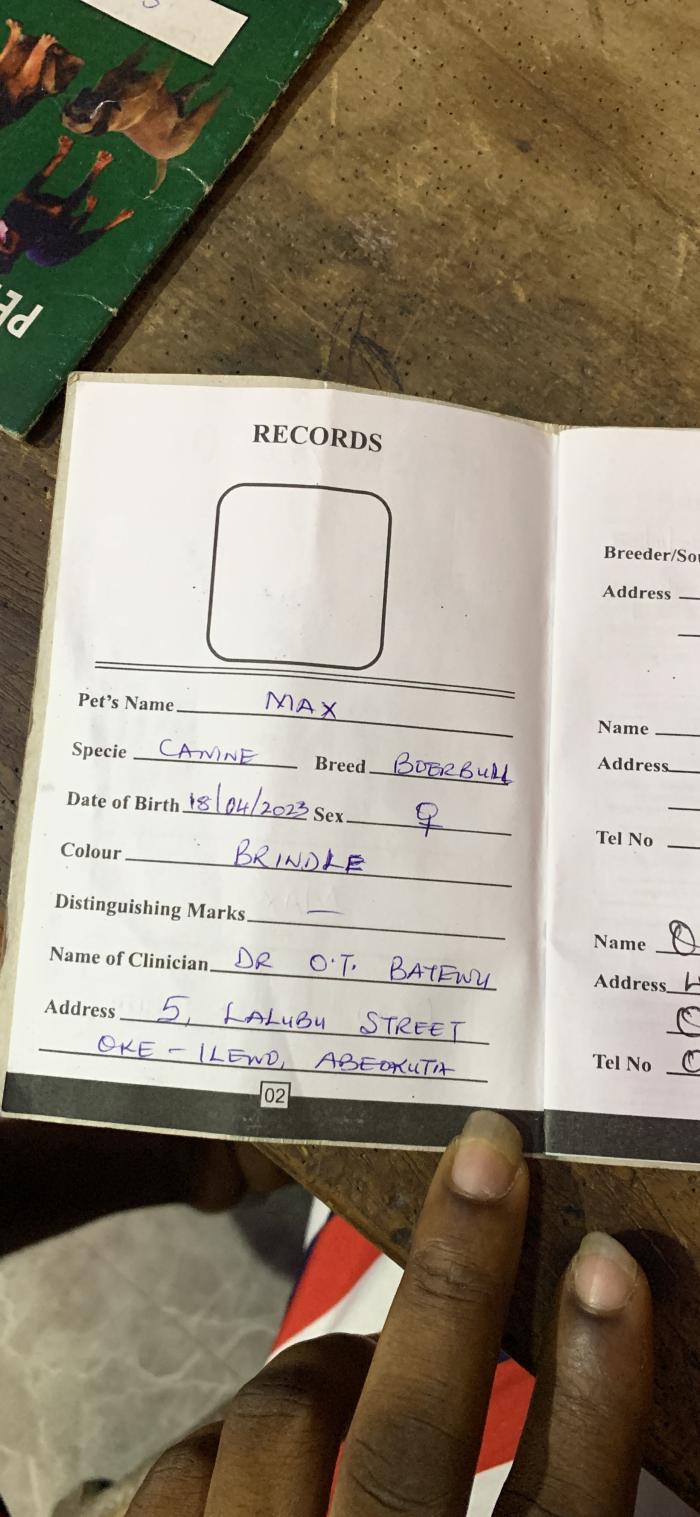 PE
RECORDS
Pet's Name MAX
Specie CANINE Breed BOERBULL
Date of Birth 18/04/2023 Sex ♀
Colour BRINDLE
Distinguishing Marks —
Name of Clinician DR O.T. BATEWU
Address 5, LALUBU STREET
OKE - ILEWO, ABEOKUTA
02
Breeder/Sou
Address
Name
Address
Tel No
Name
Address
Tel No